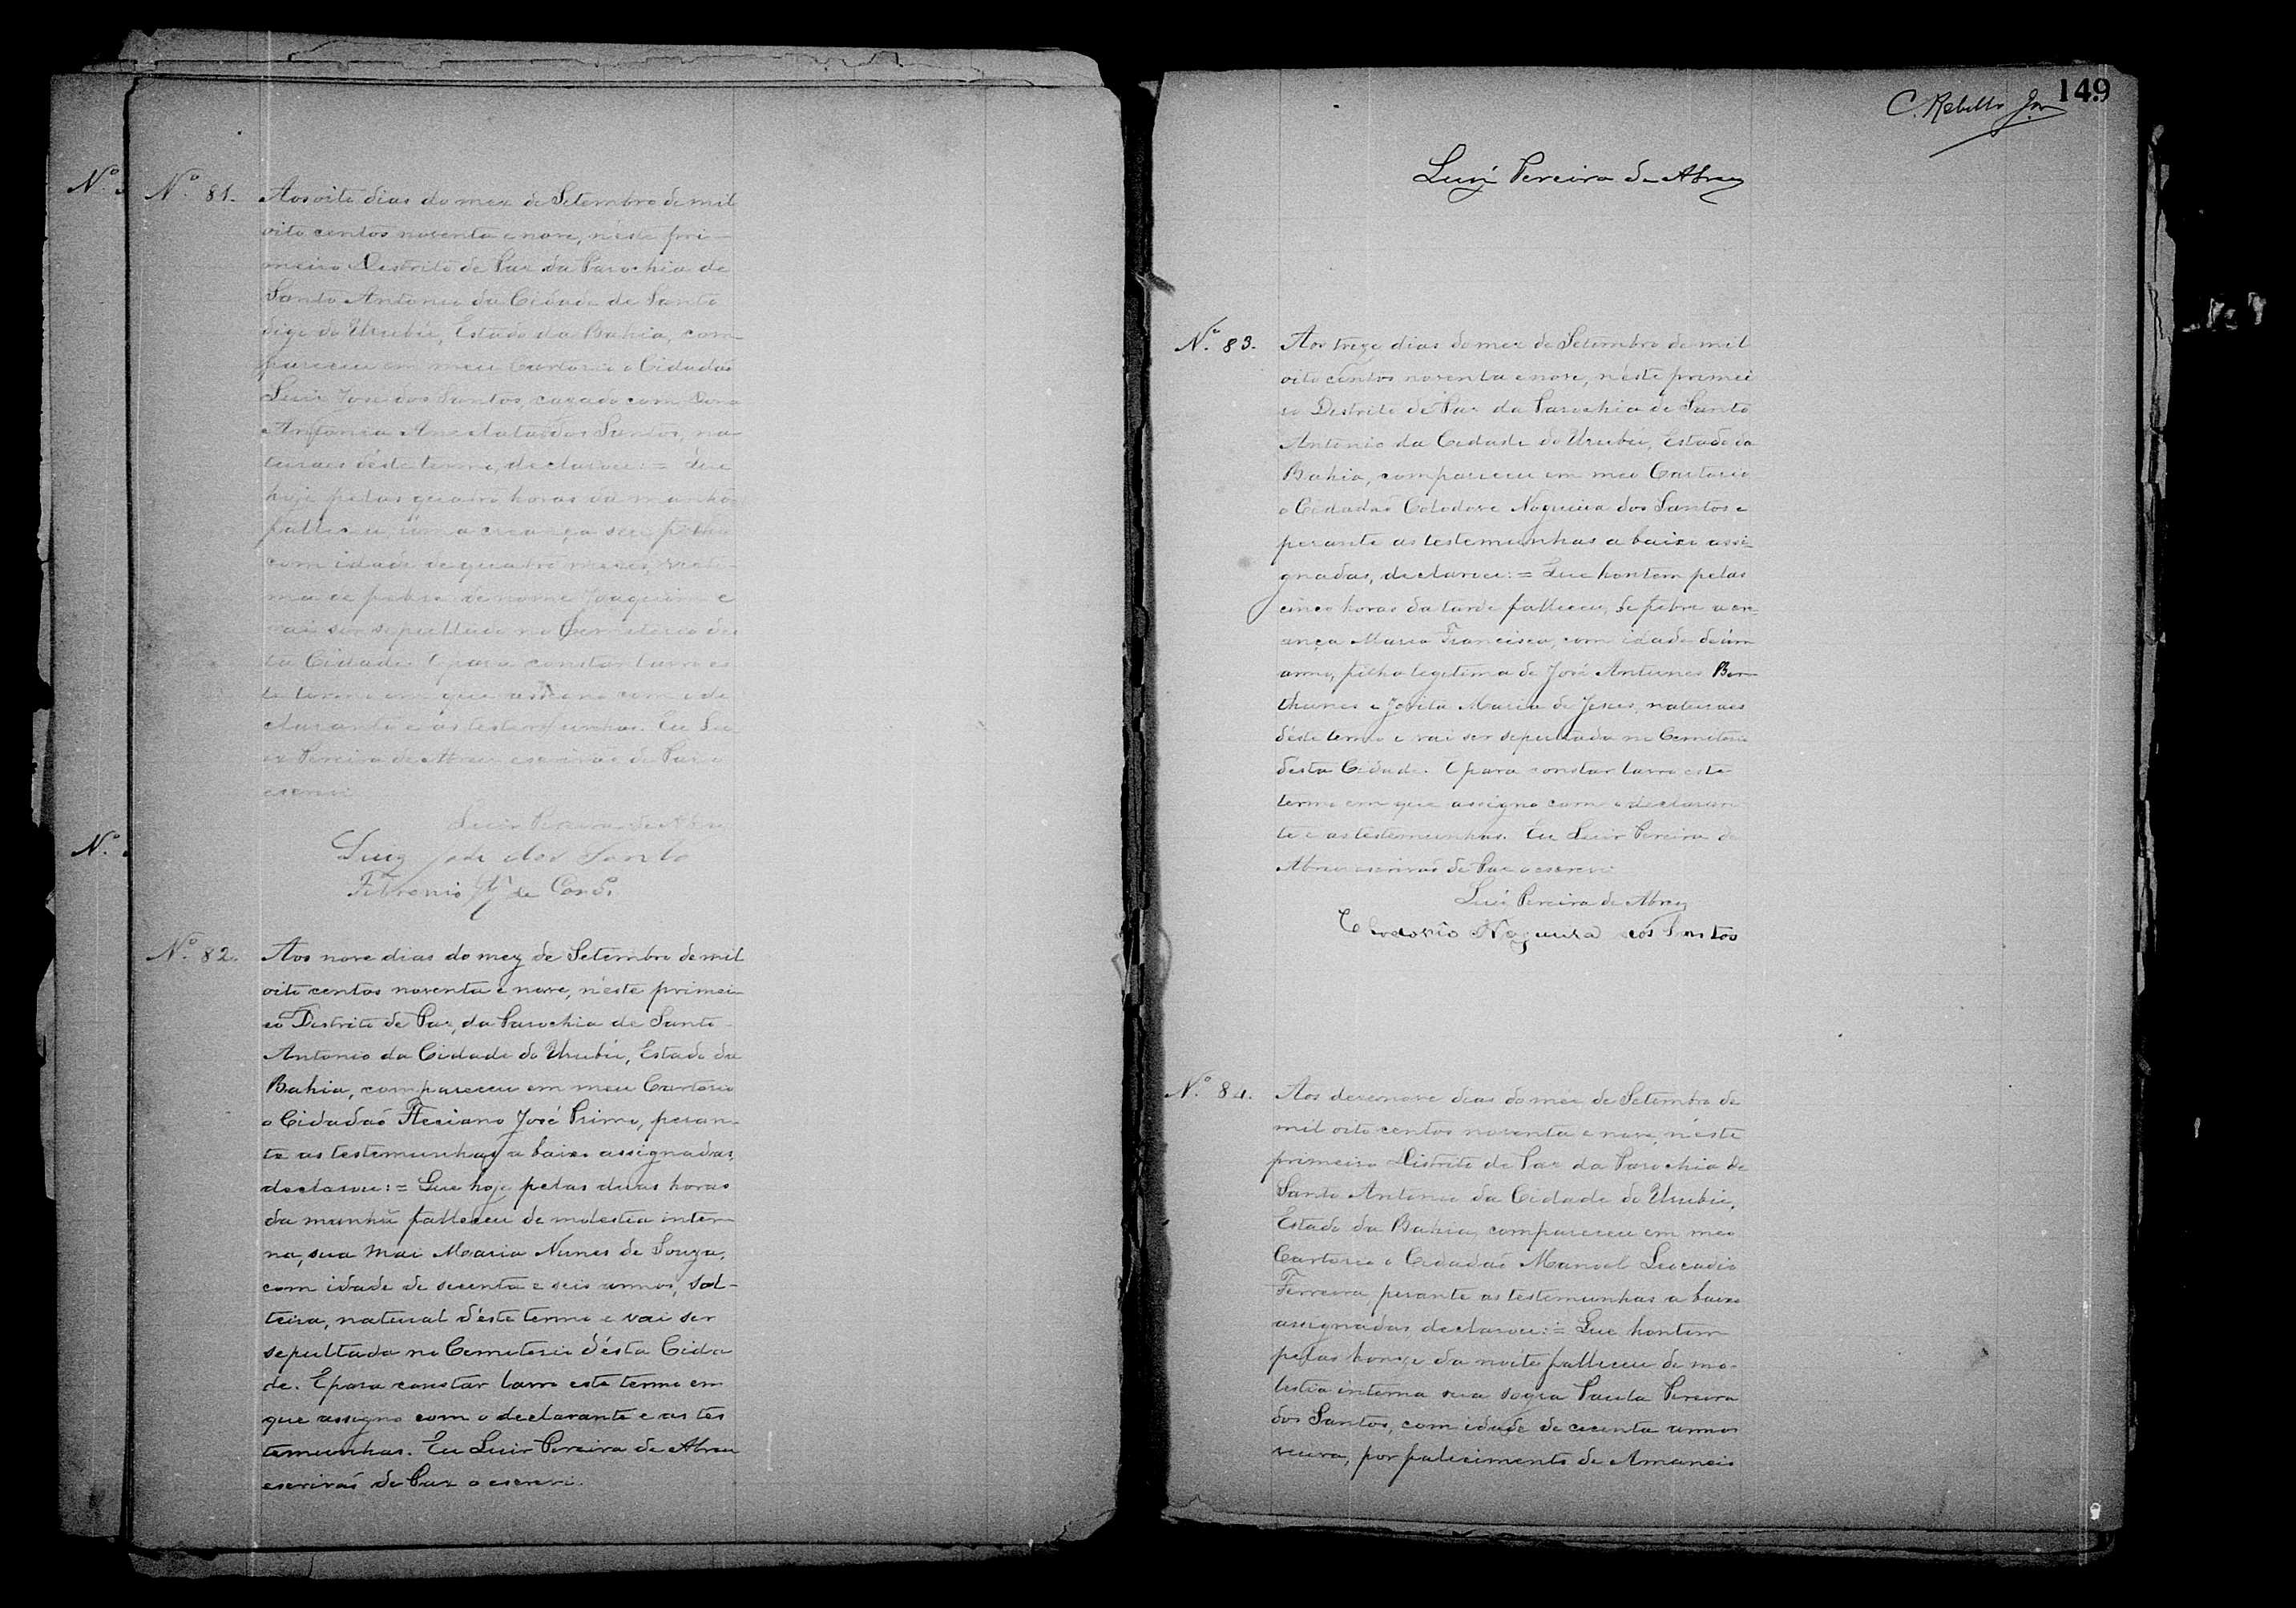 Nº
Nº 81. Aos oito dias do mez de Setembro de mil
oito centos noventa e nove, n'éste pri-
meiro Destrito de Paz da Parochia de
Santo Antonio da Cidade de Santo
digo do Urubú, Estado da Bahia, com
pareceu em meu Cartorio o Cidadaõ
Luiz José dos Santos, cazado com Dona
Antonia dos Santos, na
turaes d'éste termo, declarou: = Que
hoje pelas quatro horas da manhã
falleceu uma creança seu filho
com idade de quatro mezes, victi-
ma de febre de nome Joaquim e
vai ser sepultado no Cemiterio des
ta Cidade. E para constar lavro es
te termo em que assigno com o de
clarante e as testemunhas. Eu Lu
iz Pereira de Abreu escrivaõ de Paz o
escrevi.
Luiz Pereira de Abreu
Luiz José dos Santo
de
Nº
Nº 82. Aos nove dias do mez de Setembro de mil
oito centos noventa e nove, n'éste primei
ro Destrito de Paz, da Parochia de Santo
Antonio da Cidade do Urubú, Estado da
Bahia, compareceu em meu Cartorio
o Cidadaõ José Primo, peran-
te as testemunhas a baixo assignadas,
declarou: = Que hoje pelas duas horas
da manhã falleceu de molestia inter-
na, sua mai Maria Nunes de Souza,
com idade de secenta e seis annos, sol-
teira, natural d'éste termo e vai ser
sepultada no Cemiterio d'ésta Cida
de. E para constar lavro este termo em
que assigno com o declarante e as tes
temunhas. Eu Luiz Pereira de Abreu
escrivaõ de Paz o escrevi.
149
C. Rebello Jor
Luiz Pereira de Abreu
Nº 83. Aos treze dias do mez de Setembro de mil
oito centos noventa e nove, n'éste primei
ro Destrito de Paz da Parochia de Santo
Antonio da Cidade do Urubú, Estado da
Bahia, compareceu em meo Cartorio
o Cidadaõ Colodove Nogueira dos Santos e
perante as testemunhas a baixo assi-
gnadas, declarou: = Que hontem pelas
cinco horas da tarde falleceu, de febre a cre-
ança Maria Francisca, com idade de úm
anno, filha legitima de José Antunes Ber
thunes e Jovita Maria de Jesus, naturaes
d'éste termo e vai ser sepultada no Cemiterio
desta Cidade. E para constar lavro este
termo em que assigno com o declaran
te e as testemunhas. Eu Luiz Pereira de
Abreu escrivaõ de Paz o escrevi
Luiz Pereira de Abreu
Clodovio Nogueira dos Santos
Nº 84. Aos desenove dias do mez de Setembro de
mil oito centos noventa e nove, n'éste
primeiro Distrito de Paz da Parochia de
Santo Antonio da Cidade do Urubú,
Estado da Bahia, compareceu em meo
Cartorio o Cidadaõ Manoel Leocadio
Ferreira, perante as testemunhas a baixo
assignadas, declarou: = Que hontem
pelas honze da noite falleceu de mo-
lestia interna sua sogra Paula Pereira
dos Santos, com idade de cecenta annos
viuva, por falicimento de Amancio